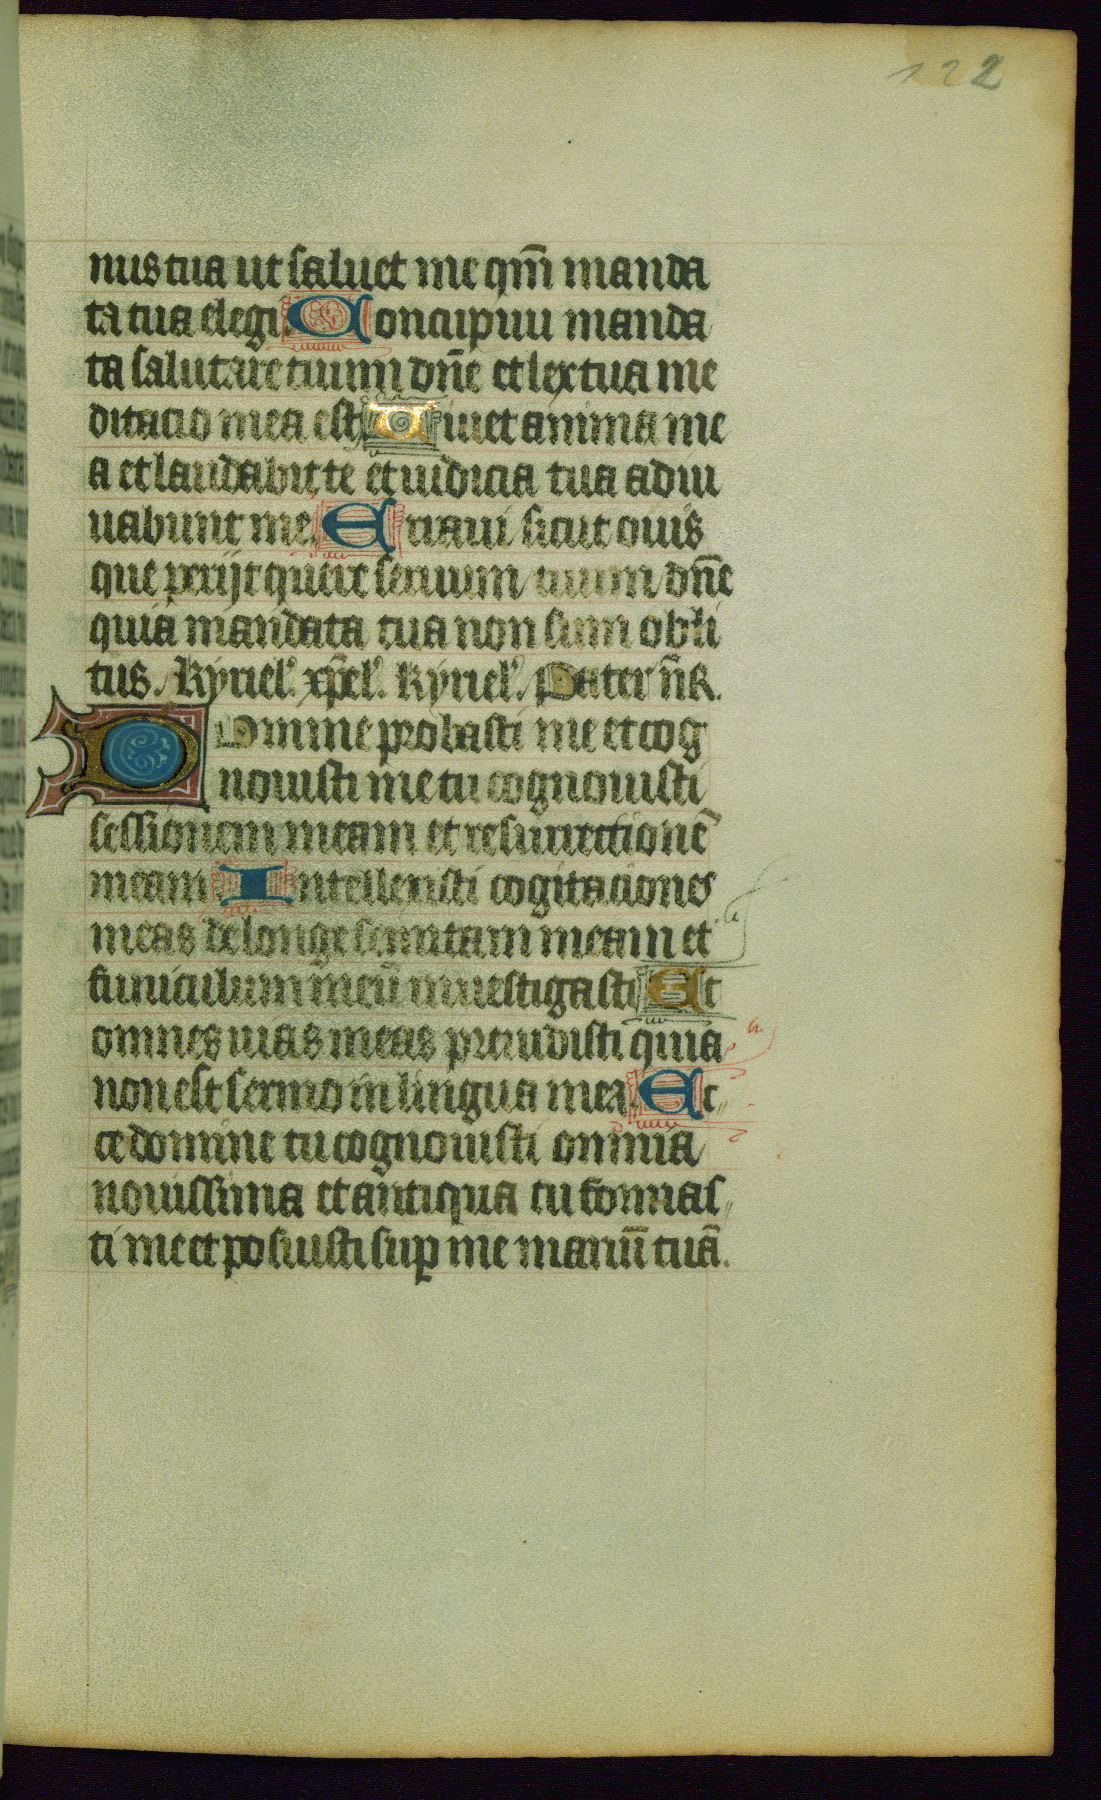 122
nus tua ut saluet me qm̄ manda
ta tua elegi. Concupiui manda
ta salutare tuum dn̄e et lex tua me
ditacio mea est. Viuet anima me
a et laudabit te et iudicia tua adiu
uabunt me. Erraui sicut ouis
que perijt quere seruum tuum dn̄e
quia mandata tua non sum obli
tus. Kyriel'. xp̄el'. Kyriel'. Pater nr̄.
Domine probasti me et cog
nouisti me tu cognouisti
sessionem meam et resurrectionē
meam. Intellexisti cogitaciones
meas de longe semitam meam et
funiculum meū inuestigasti. Et
omnes uias meas preuidisti quia
non est sermo in lingua mea. Ec
ce domine tu cognouisti omnia
nouissima et antiqua tu formas
ti me et posuisti sup me manū tuā.